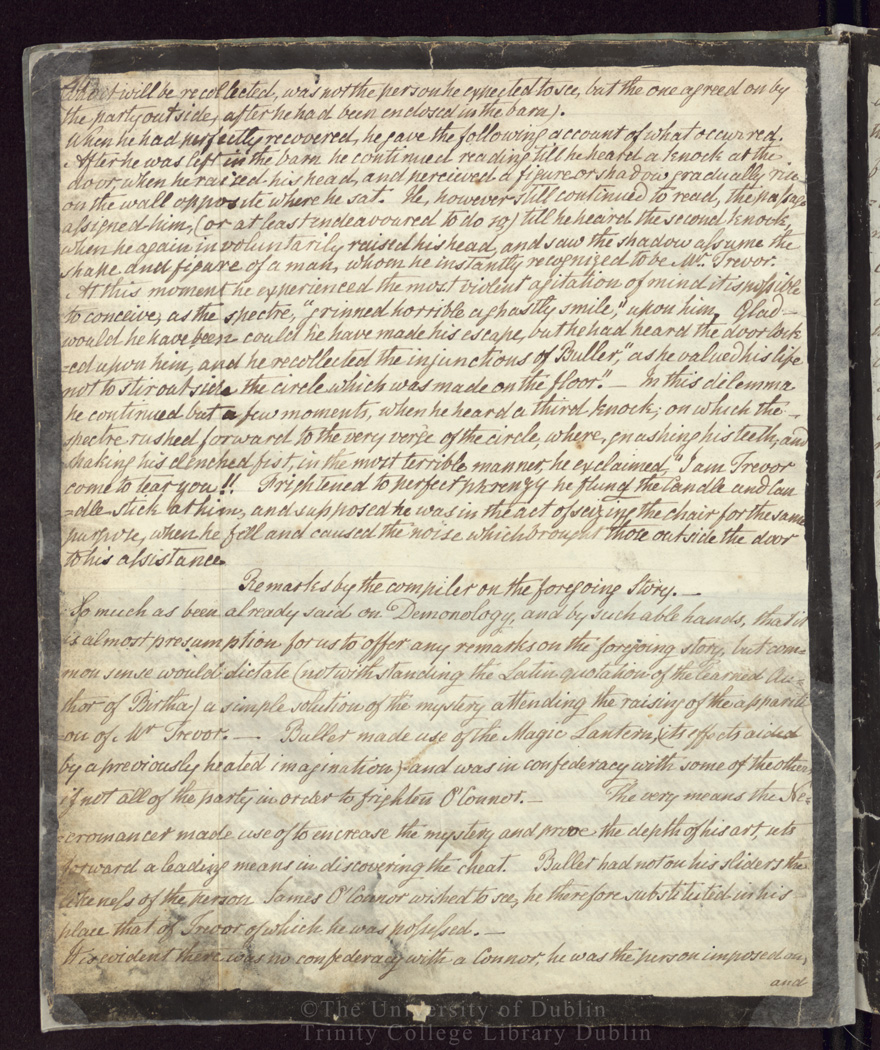 it will be recollected, was not the person he expected to see, but the one agreed on by
the party outside, after he had been enclosed in the barn).
When he had perfectly recovered, he gave the following account of what occurred.
After he was left in the barn he continued reading till he heard a knock at the
door, when he raised his head, and percieved a figure or shadow gradually rise
on the wall opposite where he sat. He, however still continued to read, the passage
assigned him, (or at least endeavoured to do so) till he heard the second knock,
when he again involuntarily raised his head, and saw the shadow assume the
shape and figure of a man, whom he instantly recognized to be Mr. Trevor.
At this moment he experienced the most violent agitation of mind it is possible
to conceive, as the spectre, "grinned horrible a ghastly smile," upon him. Glad
would he have been could he have made his escape, but he had heard the door lock
=ed upon him, and he recollected the injunctions of Buller, "as he valued his life
not to stir outside the circle which was made on the floor." — In this dilemma
he continued but a few moments, when he heard a third knock; on which the
spectre rushed forward to the very verge of the circle, where, gnashing his teeth, and
shaking his clenched fist, in the most terrible manner, he exclaimed, "I am Trevor
come to tear you!! Frightened to perfect phrenzy he flung the Candle and Can
=dle-stick at him, and supposed he was in the act of seizing the chair for the same
purpose, when he fell and caused the noise which brought those outside the door
to his assistance
Remarks by the compiler on the foregoing Story. —
So much as been already said on Demonology, and by such able hands, that it
is almost presumption for us to offer any remarks on the foregoing story, but com=
mon sense would dictate (notwithstanding the Latin quotation of the learned Au=
thor of Birtha) a simple solution of the mystery attending the raising of the appariti
on of Mr Trevor. — Buller made use of the Magic Lantern, (its effects aided
by a previously heated imagination) and was in confederacy with some of the other,
if not all of the party in order to frighten O'Connor. — The very means the Ne=
=cromancer made use of to encrease the mystery and prove the depth of his art, sets
forward a leading means in discovering the cheat. Buller had not on his sliders the
likeness of the person James O'Connor wished to see, he therefore substituted in his
place that of Trevor of which he was possessed. —
It is evident there was no confederacy with a Connor, he was the person imposed on,
and
©The University of Dublin
Trinity College Library Dublin